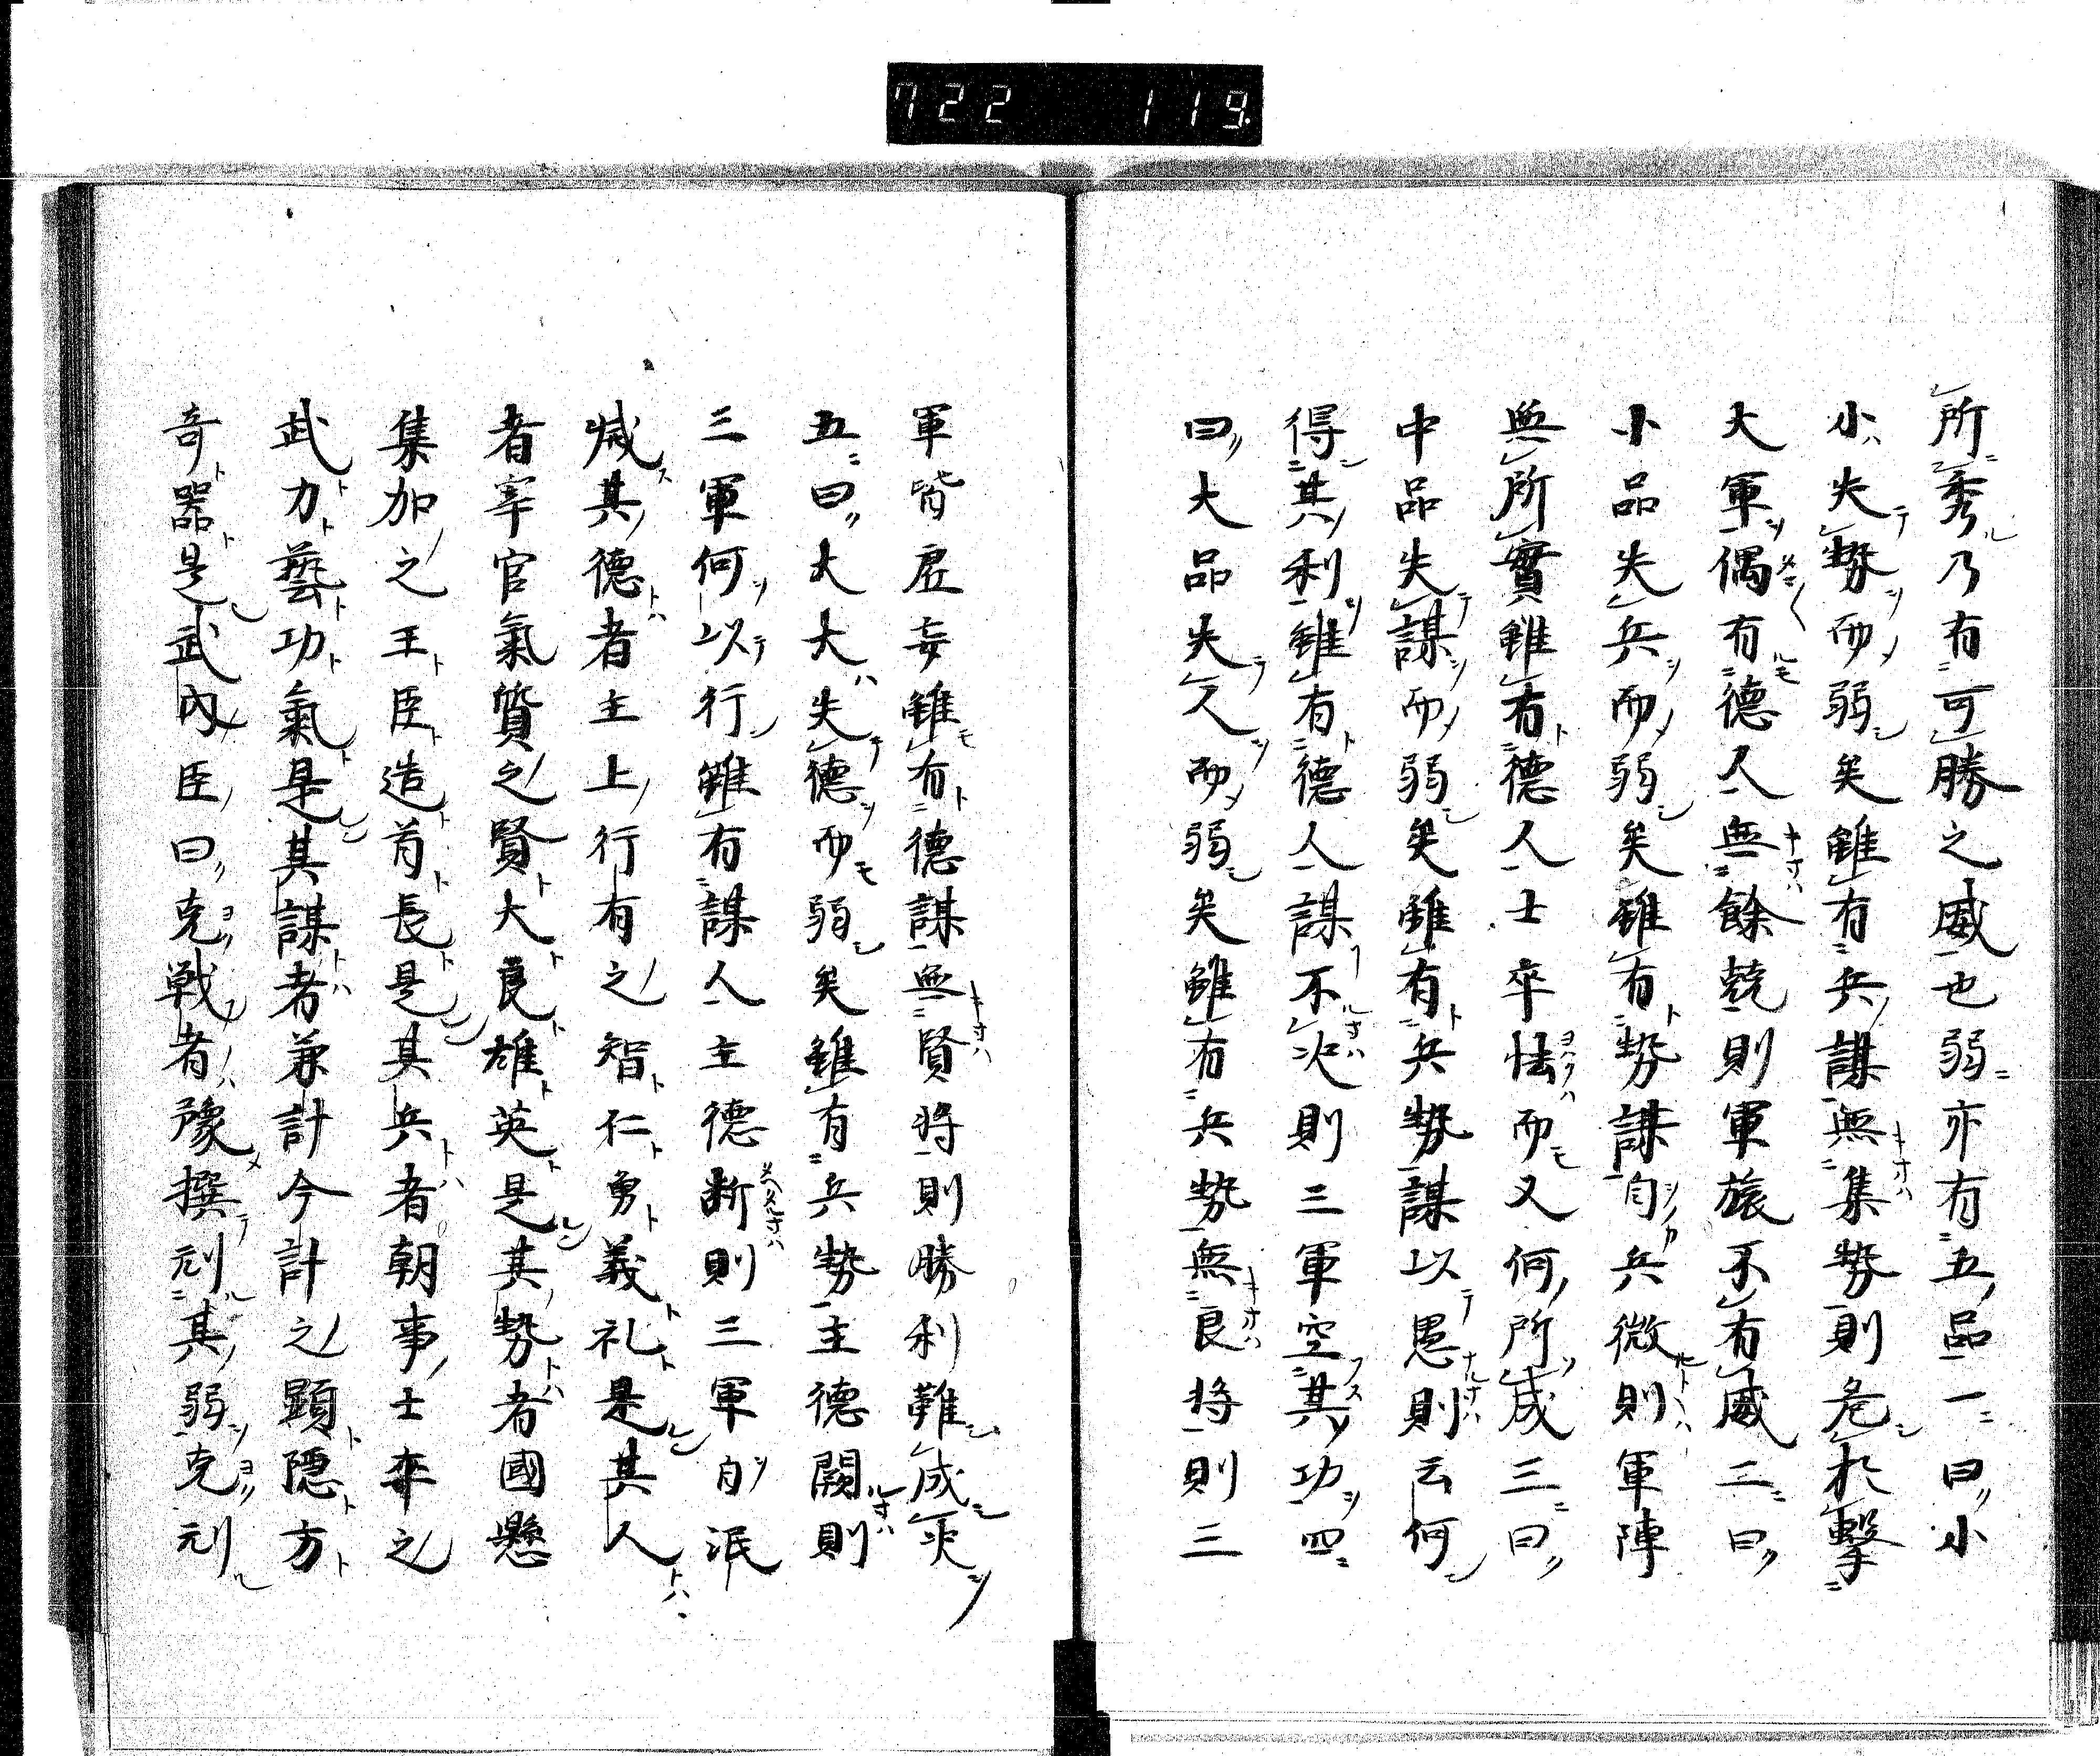 722 119.
所秀乃有可勝之威也弱亦有五品一曰小
小失勢而弱矣雖有兵謀無集勢則危於擊
大軍偶有德人無餘兢則軍旅不有威二曰
小品失兵而弱矣雖有勢謀自兵微則軍陣
無所實雖有德人士卒怯而又何所成三曰
中品失謀而弱矣雖有兵勢謀以愚則云何
得其利雖有德人謀不次則三軍空其功四
曰大品失人而弱矣雖有兵勢無良将則三
軍皆虚妄雖有德謀無賢将則勝利難成矣
五曰大大失德而弱矣雖有兵勢主德闕則
三軍何以行雖有謀人主德断則三軍自泯
減其德者主上行有之智仁勇義礼是其人
者宰官氣質之賢大良雄英是其勢者國懸
集加之王臣造首長是其兵者朝事士卒之
武力藝功氣是其謀者兼計今計之顕隠方
奇器是武内臣曰克戦者豫撰刓其弱克刓